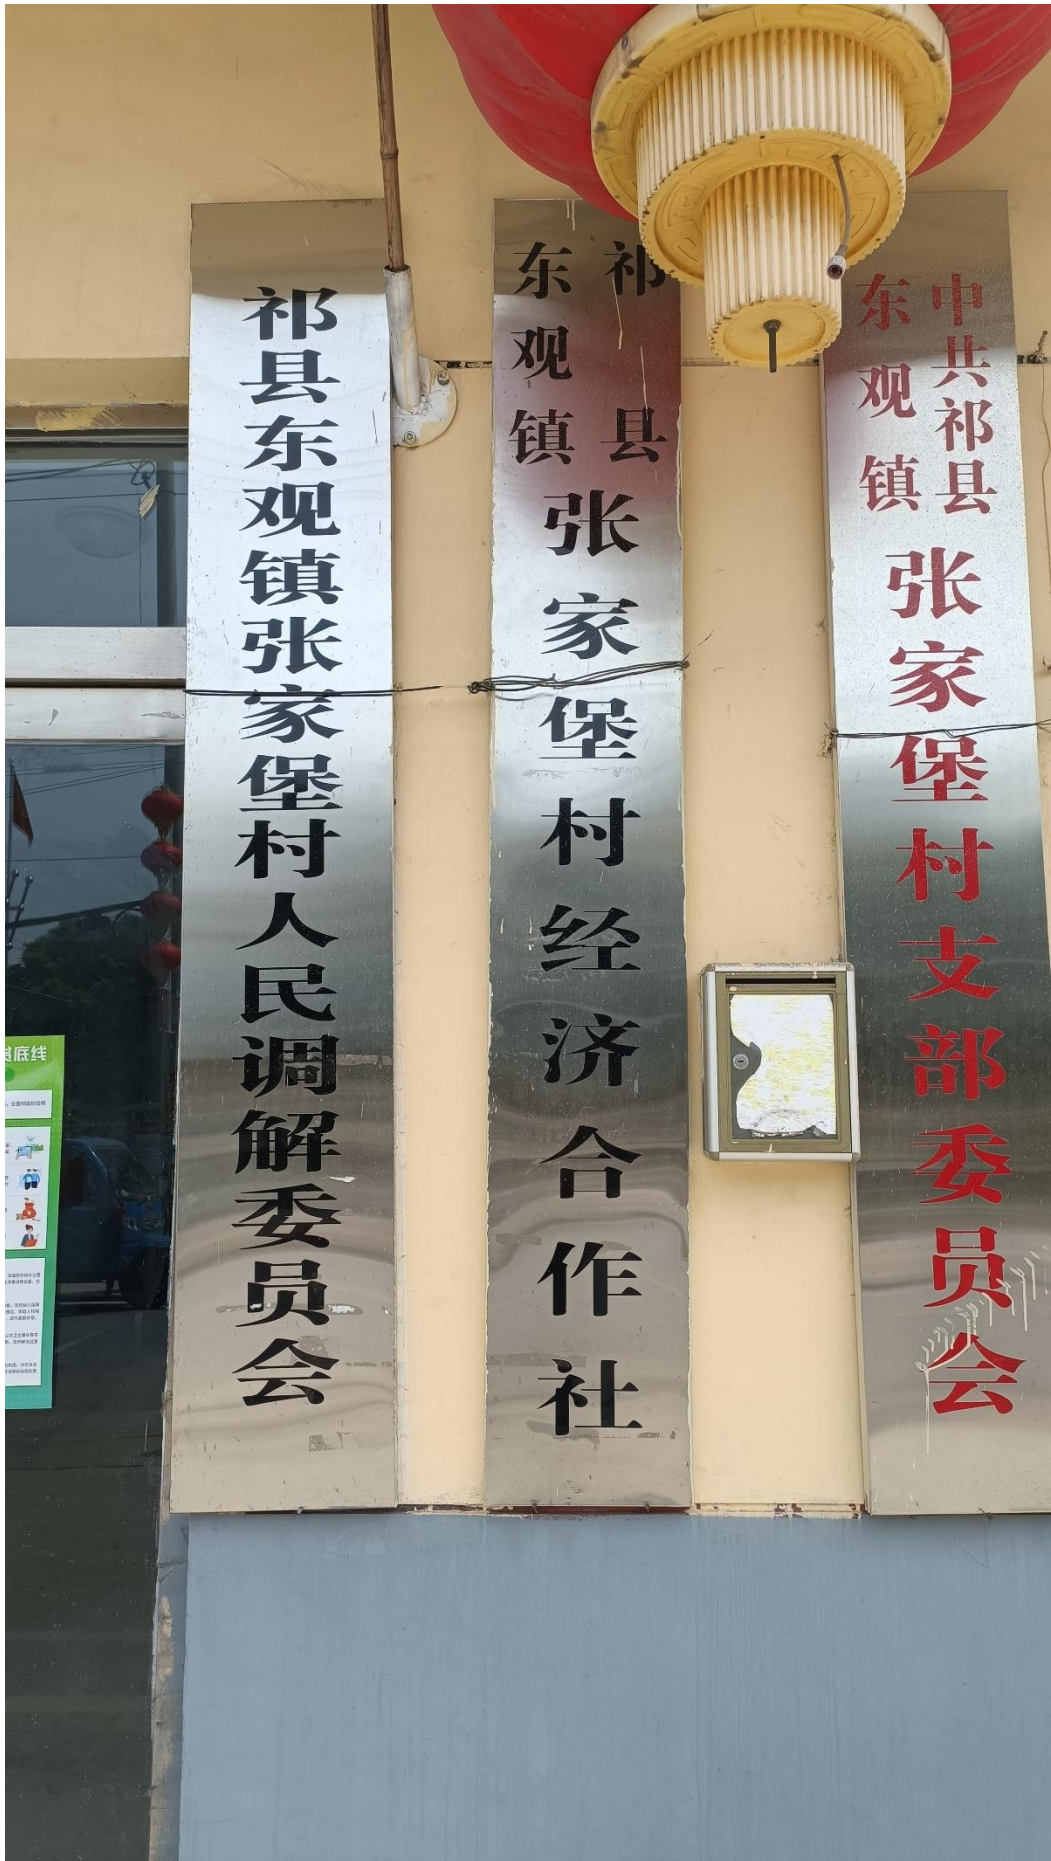 祁县东观镇张家堡村人民调解委员会
祁县
东观镇
张家堡村经济合作社
中共祁县
东观镇
张家堡村支部委员会
底线